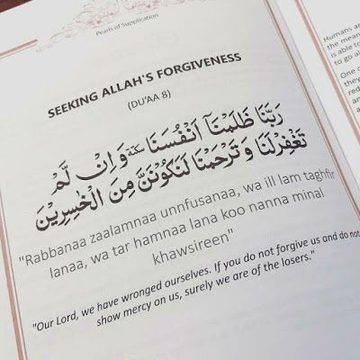 Pearls of Supplication
SEEKING ALLAH'S FORGIVENESS
(DU'AA 8)
رَبَّنَا ظَلَمْنَآ اَنْفُسَنَا سكتة وَاِنْ لَّمْ
تَغْفِرْلَنَا وَتَرْحَمْنَا لَنَكُوْنَنَّ مِنَ الْخٰسِرِيْنَ
"Rabbanaa zaalamnaa unnfusanaa, wa ill lam taghfir
lanaa, wa tar hamnaa lana koo nanna minal
khawsireen"
"Our Lord, we have wronged ourselves. If you do not forgive us and do not
show mercy on us, surely we are of the losers."
Humans a
the mean
is able to
to go al
One c
they
red
an